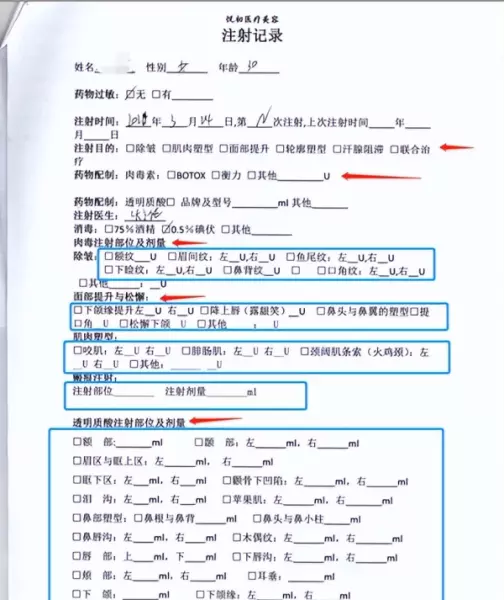 悦初医疗美容
注射记录
姓名 性别 女 年龄 30
药物过敏：☑无 □有
注射时间：2018年3月14日,第N次注射,上次注射时间____年__
月____日
注射目的：□除皱 □肌肉塑型 □面部提升 □轮廓塑型 □汗腺阻滞 □联合治
疗
药物配制：肉毒素：□BOTOX □衡力 □其他________U
药物配制：透明质酸□ 品牌及型号________ml 其他________
注射医生：
消毒：□75%酒精 ☑0.5%碘伏 □其他________
肉毒注射部位及剂量
除皱：□额纹__U □眉间纹：左__U,右__U □鱼尾纹：左__U,右__U
□下睑纹：左__U,右__U □鼻背纹__U □ □口角纹：左__U,右__U
□其他______：__U
面部提升与松懈：
□下颌缘提升左__U 右__U □降上唇（露龈笑）__U □鼻头与鼻翼的塑型□提
口角__U □松懈下颌 U □其他 ： U
肌肉塑型：
□咬肌：左__U 右__U □腓肠肌：左__U 右__U □颈阔肌条索（火鸡颈）：左
__U 右__U □其他：______U
注射：
注射部位________ 注射剂量________ml
透明质酸注射部位及剂量
□额 部：______ml □颞 部：左______ml，右______ml
□眉区与眶上区：左______ml， 右______ml
□眶下区：左____ml，右____ml □颧骨下凹陷：左____ml，右____ml
□泪 沟：左____ml，右____ml □苹果肌：左____ml，右____ml
□鼻部塑型：□鼻根与鼻背______ml □鼻头与鼻小柱____ml
□鼻唇沟：左____ml，右____ml □木偶纹：左____ml，右____ml
□唇 部：上____ml，下____ml □下唇沟：左____ml，右____ml
□颊 部：左____ml，右____ml □耳垂：______ml
□下 颌：______ml □下颌缘：左____ml，右____ml